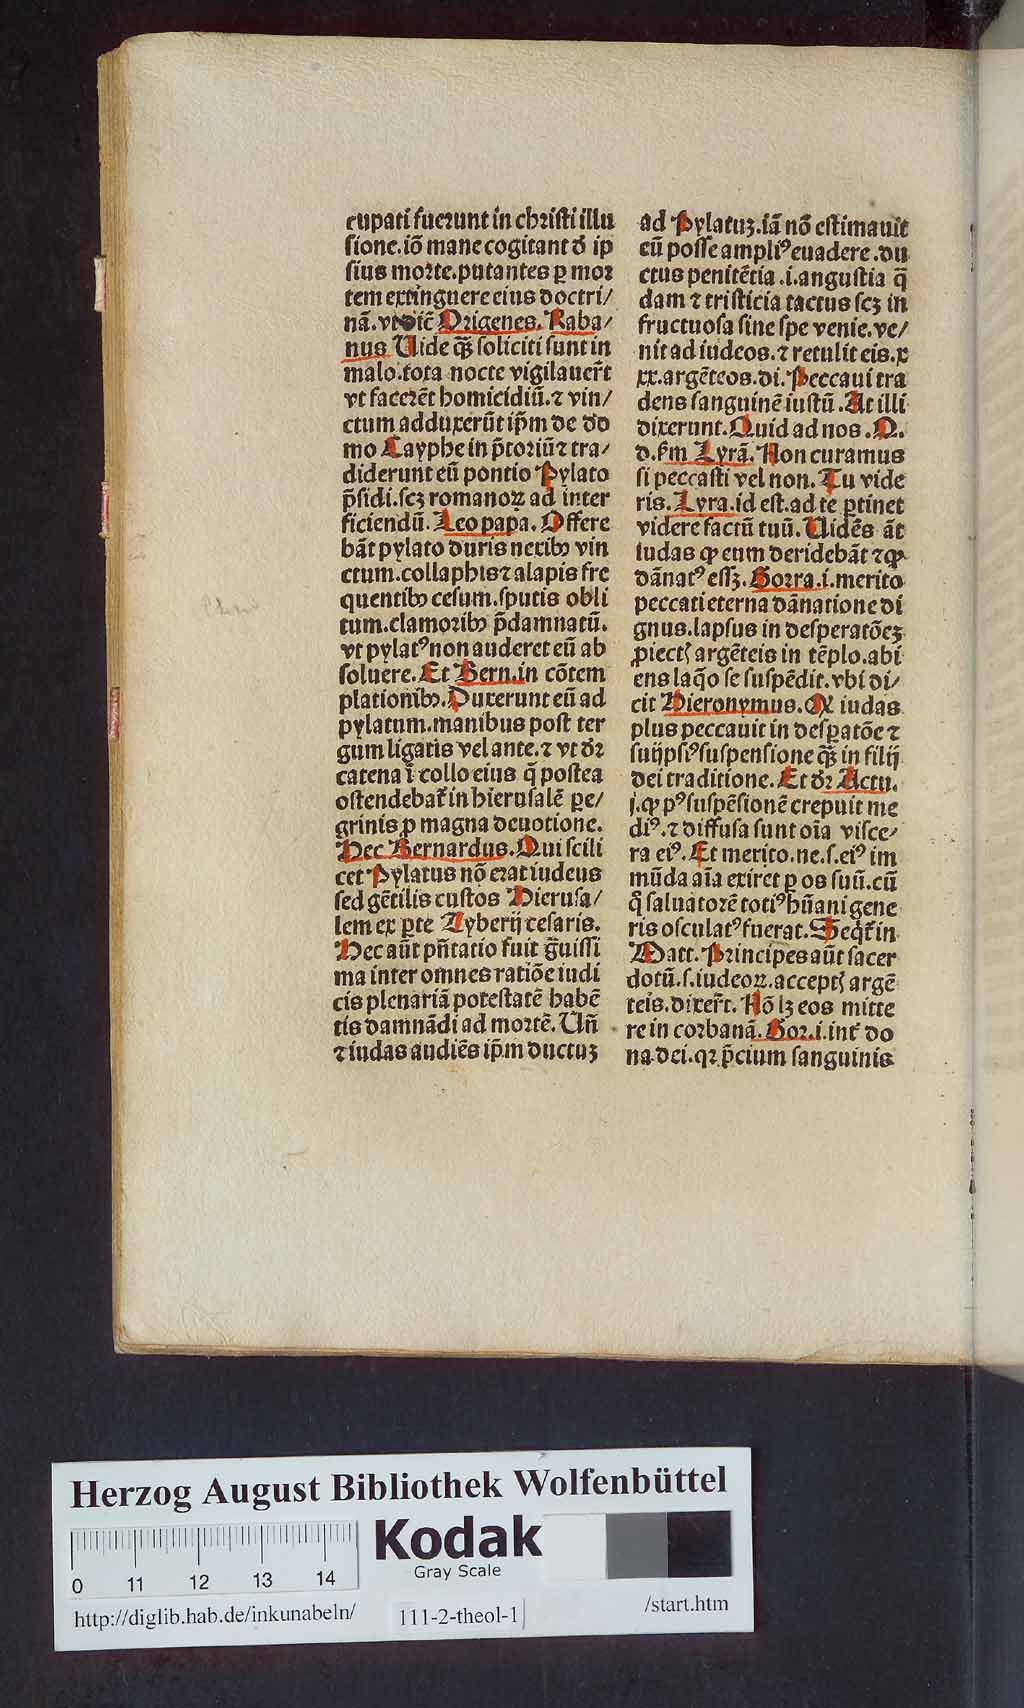 cupati fuerunt in christi illu
sione. iō mane cogitant đ ip
sius morte. putantes ꝑ mor
tem extinguere eius doctri/
nā. vt dicē Origenes. Raba/
nus Uide qͣꝫ soliciti sunt in
malo. tota nocte vigilauer̄t
vt facerēt homicidiū. ⁊ vin/
ctum adduxerūt ip̄m de do
mo Cayphe in p̄toriū ⁊ tra/
diderunt eū pontio Pylato
p̄sidi. scꝫ romanoꝝ ad inter
ficiendū. Leo papa. Offere
bāt pylato duris nexibꝰ vin
ctum. collaphis ⁊ alapis fre
quentibꝰ cesum. sputis obli
tum. clamoribꝰ p̄damnatū.
vt pylatꝰ non auderet eū ab
soluere. Et Bern. in cōtem
plationibꝰ. Duxerunt eū ad
pylatum. manibus post ter
gum ligatis vel ante. ⁊ vt đr
catena ī collo eius q̄ postea
ostendebat̄ in hierusalē ꝑe/
grinis ꝓ magna deuotione.
Hec Bernardus. Qui scili
cet Pylatus nō erat iudeus
sed gētilis custos Hierusa/
lem ex ꝑte Tyberij cesaris.
Hec aūt pn̄tatio fuit ḡuissi
ma inter omnes ratiōe iudi
cis plenariā potestatē habē
tis damnādi ad mortē. Un̄
⁊ iudas audiēs ip̄m ductuꝫ
ad Pylatuꝫ. iā nō estimauit
eū posse ampliꝰ euadere. du
ctus penitētia. i. angustia q̄
dam ⁊ tristicia tactus scꝫ in
fructuosa sine spe venie. ve/
nit ad iudeos. ⁊ retulit eis. x
xx. argēteos. di. Peccaui tra
dens sanguinē iustū. At illi
dixerunt. Quid ad nos. Q.
d. ẜm Lyrā. Non curamus
si peccasti vel non. Tu vide
ris. Lyra. id est. ad te ꝑtinet
videre factū tuū. Uidēs āt
iudas ꝙ eum deridebāt ⁊ ꝙ
dānatꝰ essꝫ. Gorra. i. merito
peccati eterna dānatione di
gnus. lapsus in desperatōeꝫ
ꝓiectꝭ argēteis in tēplo. abi
ens laq̄o se suspēdit. vbi di/
cit Hieronymus. Qꝫ iudas
plus peccauit in despatōe ⁊
suijpsiꝰ suspensione qͣꝫ in filij
dei traditione. Et đr Actu.
j. ꝙ pꝰ suspēsionē crepuit me
diꝰ. ⁊ diffusa sunt oīa visce/
ra eiꝰ. Et merito. ne. s. eiꝰ im
mūda aīa exiret ꝑ os suū. cū
q̊ saluatorē totiꝰ hūani gene
ris osculatꝰ fuerat. Seqͥt̄ in
Matt. Principes aūt sacer
dotū. s. iudeoꝝ. acceptꝭ argē
teis. dixer̄t. Nō lꝫ eos mitte
re in corbanā. Gor. i. int̄ do
na dei. qꝛ p̄cium sanguinis
Herzog August Bibliothek Wolfenbüttel
Kodak
Gray Scale
0 11 12 13 14
http://diglib.hab.de/inkunabeln/ 111-2-theol-1 /start.htm